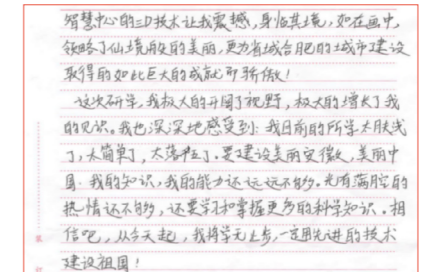 智慧中心的3D技术让我震撼，身临其境，如在画中，
领略了仙境般的美丽，更为省城合肥的城市建设
取得的如此巨大的成就而骄傲！
这次研学，我极大的开阔了视野，极大的增长了我
的见识。我也深深地感受到：我目前的所学太肤浅
了，太简单了，太落伍了。要建设美丽安徽，美丽中
国，我的知识，我的能力还远远不够。光有满腔的
热情还不够，还要学习和掌握更多的科学知识。相
信吧，从今天起，我将学无止步，一定用先进的技术
建设祖国！